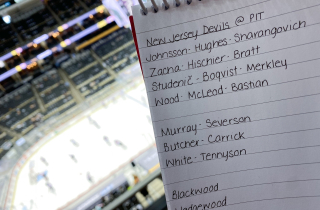 New Jersey Devils @ PIT
Johnsson · Hughes · Sharangovich
Zacha · Hischier · Bratt
Studenic · Boqvist · Merkley
Wood · McLeod · Bastian
Murray · Severson
Butcher · Carrick
White · Tennyson
Blackwood
Wedgewood